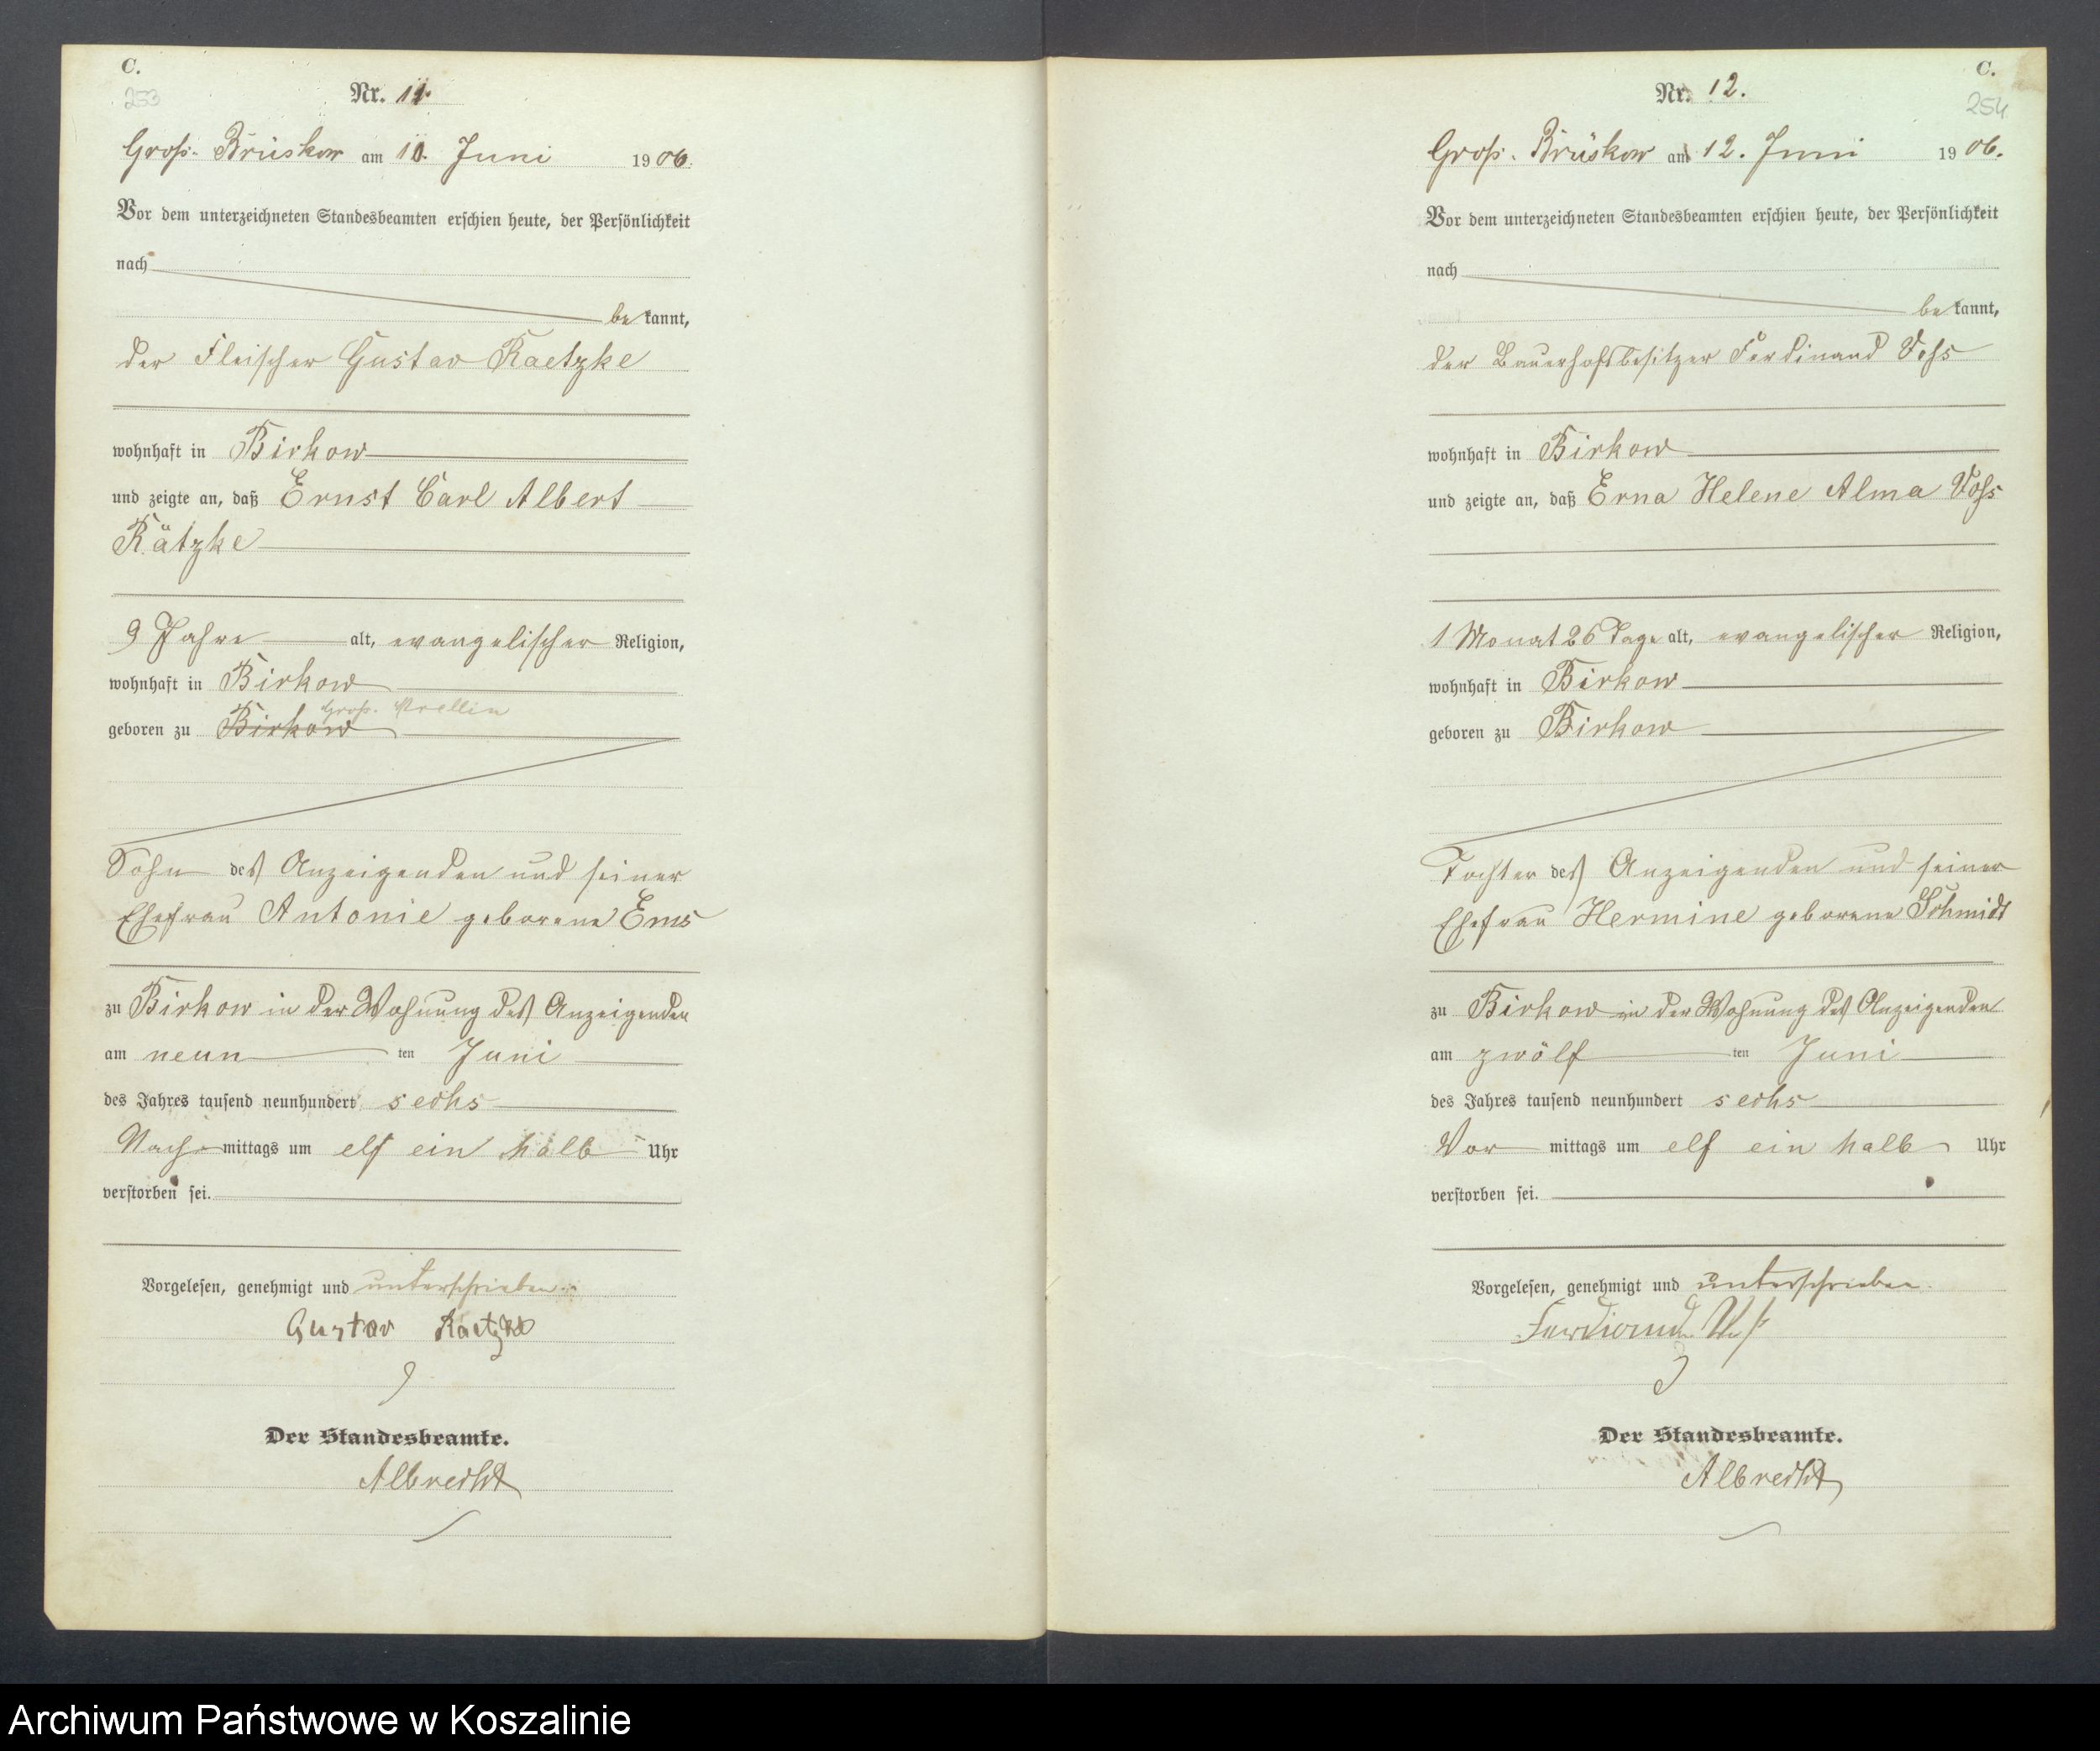 C.
253
Nr. 11.
Groß-Brüskow am 10. Juni 1906.
Vor dem unterzeichneten Standesbeamten erschien heute, der Persönlichkeit
nach
bekannt,
der Fleischer Gustav Raetzke
wohnhaft in Birkow
und zeigte an, daß Ernst Carl Albert
Rätzke
9 Jahre alt, evangelischer Religion,
wohnhaft in Birkow
Groß.
geboren zu Birkow
Sohn des Anzeigenden und seiner
Ehefrau Antonie geborene Ems
zu Birkow in der Wohnung des Anzeigenden
am neunten Juni
des Jahres tausend neunhundert sechs
Nachmittags um elf ein halb Uhr
verstorben sei.
Vorgelesen, genehmigt und unterschrieben
Gustav Raetzke
Der Standesbeamte.
Albrecht
C.
254
Nr. 12.
Groß-Brüskow am 12. Juni 1906.
Vor dem unterzeichneten Standesbeamten erschien heute, der Persönlichkeit
nach
bekannt,
der Bauerhofsbesitzer Ferdinand Voß
wohnhaft in Birkow
und zeigte an, daß Erna Helene Alma Voß
1 Monat 26 Tage alt, evangelischer Religion,
wohnhaft in Birkow
geboren zu Birkow
Tochter des Anzeigenden und seiner
Ehefrau Hermine geborene Schmidt
zu Birkow in der Wohnung des Anzeigenden
am zwölften Juni
des Jahres tausend neunhundert sechs
Vormittags um elf ein halb Uhr
verstorben sei.
Vorgelesen, genehmigt und unterschrieben.
Ferdinand Voß
Der Standesbeamte.
Albrecht
Archiwum Państwowe w Koszalinie